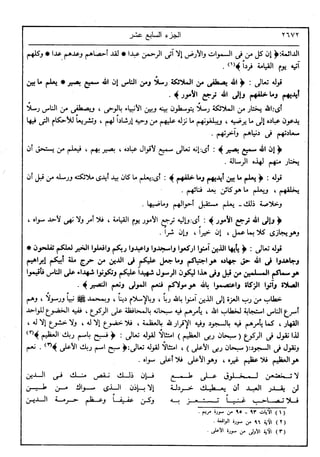 ٢٦٧٢ الجزء السابع عشر
الدائمة: ﴿ إن كل من في السموات والأرض إلا أتى الرحمن عبدا * لقد أحصاهم وعدهم عدا * وكلهم
آتيه يوم القيامة فردا ﴾(١).
قوله تعالى : ﴿ الله يصطفى من الملائكة رسلاً ومن الناس إن الله سميع بصير * يعلم ما بين
أيديهم وما خلفهم وإلى الله ترجع الأمور ﴾ .
أى: الله يختار من الملائكة رسلا يتوسطون بينه وبين الأنبياء بالوحى ، ويصطفى من الناس رسلاً
يدعون عباده إلى ما يرضيه ، ويبلغونهم ما نزله عليهم من وحيه إرشاداً لهم ، وتشريعاً للأحكام التى فيها
سعادتهم فى دنياهم وآخرتهم .
﴿ إن الله سميع بصير ﴾ : أى: إنه تعالى سميع لأقوال عباده ، بصير بهم ، فيعلم من يستحق أن
يختار منهم لهذه الرسالة .
قوله : ﴿ يعلم ما بين أيديهم وما خلفهم ﴾ : أى: يعلم ما كان بيد أيدى ملائكته ورسله من قبل أن
يخلقهم ، ويعلم ما هو كائن بعد فنائهم .
وخلاصة ذلك ـ يعلم مستقبل أحوالهم وماضيها .
﴿ وإلى الله ترجع الأمور ﴾ : أى: وإليه ترجع الأمور يوم القيامة ، فلا أمر ولا نهى لأحد سواه ،
وهو يجازى كلا بما عمل ، إن خيراً ، وإن شرا .
قوله تعالى : ﴿ يأيها الذين آمنوا اركعوا واسجدوا واعبدوا ربكم وافعلوا الخير لعلكم تفلحون *
وجاهدوا فى الله حق جهاده هو اجتباكم وما جعل عليكم فى الدين من حرج ملة أبيكم إبراهيم
هو سماكم المسلمين من قبل وفى هذا ليكون الرسول شهيدا عليكم وتكونوا شهداء على الناس فأقيموا
الصلاة وآتوا الزكاة واعتصموا بالله هو مولاكم فنعم المولى ونعم النصير ﴾ .
خطاب من رب العزة إلى الذين آمنوا بالله رباً ، وبالإسلام ديناً ، وبمحمد ﷺ نبياً ورسولا ، وهم
أسرع الناس استجابة لخطاب الله ، يأمرهم فيه سبحانه بالمحافظة على الركوع ، ففيه الخضوع للواحد
القهار ، كما يأمرهم فيه بالسجود وفيه الإقرار لله بالعظمة ، فلا خضوع إلا له ، ولا خشوع إلا له ،
لذا نقول فى الركوع ( سبحان ربى العظيم ) امتثالاً لقوله تعالى : ﴿ فسبح باسم ربك العظيم ﴾(٢)
ونقول فى السجود: ( سبحان ربى الأعلى ) ، امتثالا لقوله تعالى: ﴿ سبح اسم ربك الأعلى ﴾(٣). نعم
هو العظيم فلا عظيم غيره ، وهو الأعلى فلا أعلى سواه .
لا تخضعن لمخلوق على طمع فإن ذلك نقص منك فى الدين
لن يقدر العبد أن يعطيك خردلة إلا بإذن الذى سواك من طين
فلا تصاحب غنياً تستعز به وكن عفيفاً وعظم حرمة الدين
(١) الآيات ٩٣ ـ ٩٥ من سورة مريم .
(٢) الآية ٩٦ من سورة الواقعة .
(٣) الآية الأولى من سورة الأعلى .